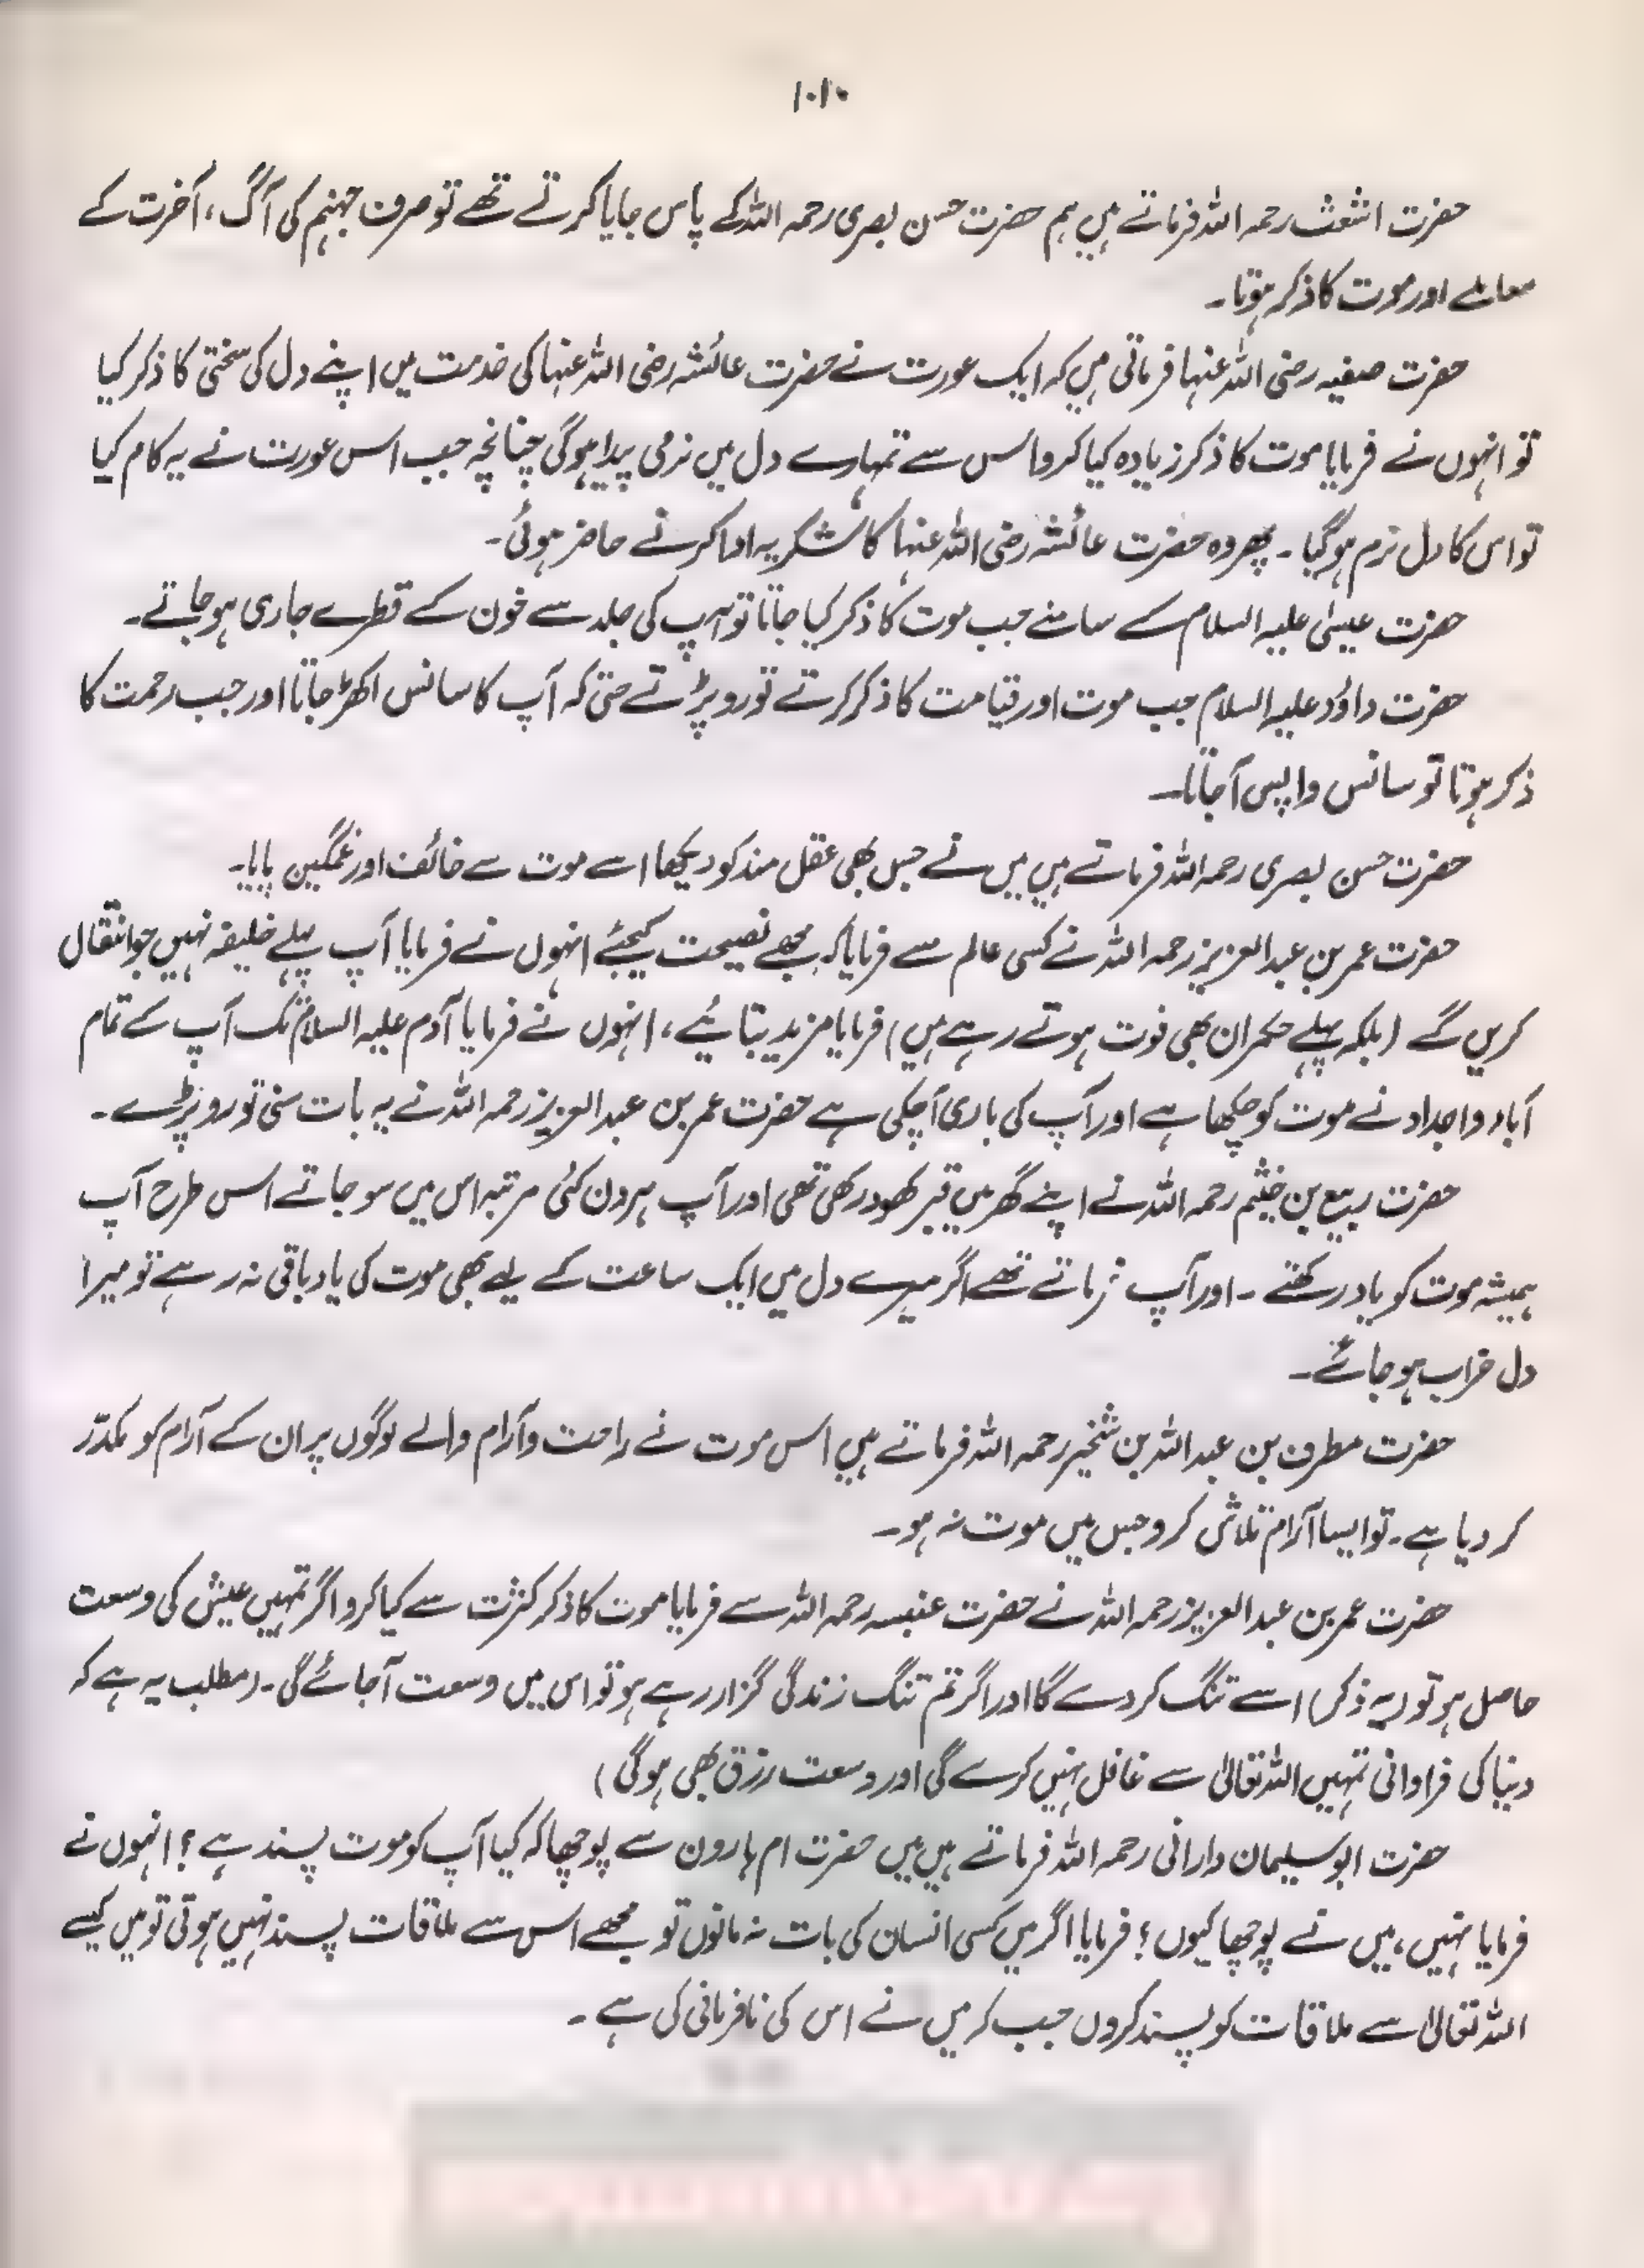 ۱۰۱۰
حضرت اشعث رحمہ اللہ فرماتے ہیں ہم حضرت حسن بصری رحمہ اللہ کے پاس جایا کرتے تھے تو صرف جہنم کی آگ، آخرت کے
معاملے اور موت کا ذکر ہوتا۔
حضرت صفیہ رضی اللہ عنہا فرماتی ہیں کہ ایک عورت نے حضرت عائشہ رضی اللہ عنہا کی خدمت میں اپنے دل کی سختی کا ذکر کیا
تو انہوں نے فرمایا موت کا ذکر زیادہ کیا کرو اس سے تمہارے دل میں نرمی پیدا ہوگی چنانچہ جب اس عورت نے یہ کام کیا
تو اس کا دل نرم ہوگیا۔ پھر وہ حضرت عائشہ رضی اللہ عنہا کا شکریہ ادا کرنے حاضر ہوئی۔
حضرت عیسیٰ علیہ السلام کے سامنے جب موت کا ذکر کیا جاتا تو آپ کی جلد سے خون کے قطرے جاری ہو جاتے۔
حضرت داؤد علیہ السلام جب موت اور قیامت کا ذکر کرتے تو رو پڑتے حتیٰ کہ آپ کا سانس اکھڑ جاتا اور جب رحمت کا
ذکر ہوتا تو سانس واپس آجاتا۔
حضرت حسن بصری رحمہ اللہ فرماتے ہیں میں نے جس بھی عقل مند کو دیکھا اسے موت سے خائف اور غمگین پایا۔
حضرت عمر بن عبدالعزیز رحمہ اللہ نے کسی عالم سے فرمایا کہ مجھے نصیحت کیجئے انہوں نے فرمایا آپ پہلے خلیفہ نہیں جو انتقال
کریں گے (بلکہ پہلے حکمران بھی فوت ہوتے رہے ہیں) فرمایا مزید بتائیے، انہوں نے فرمایا آدم علیہ السلام تک آپ کے تمام
آباء و اجداد نے موت کو چکھا ہے اور آپ کی باری آچکی ہے حضرت عمر بن عبدالعزیز رحمہ اللہ نے یہ بات سنی تو رو پڑے۔
حضرت ربیع بن خثیم رحمہ اللہ نے اپنے گھر میں قبر کھود رکھی تھی اور آپ ہر دن کئی مرتبہ اس میں سو جاتے اس طرح آپ
ہمیشہ موت کو یاد رکھتے۔ اور آپ فرماتے تھے اگر میرے دل میں ایک ساعت کے لیے بھی موت کی یاد باقی نہ رہے تو میرا
دل خراب ہو جائے۔
حضرت مطرف بن عبداللہ بن شخیر رحمہ اللہ فرماتے ہیں اس موت نے راحت و آرام والے لوگوں پر ان کے آرام کو مکدّر
کر دیا ہے۔ تو ایسا آرام تلاش کرو جس میں موت نہ ہو۔
حضرت عمر بن عبدالعزیز رحمہ اللہ نے حضرت عنبسہ رحمہ اللہ سے فرمایا موت کا ذکر کثرت سے کیا کرو اگر تمہیں عیش کی وسعت
حاصل ہو تو (یہ ذکر) اسے تنگ کر دے گا اور اگر تم تنگ زندگی گزار رہے ہو تو اس میں وسعت آجائے گی۔ (مطلب یہ ہے کہ
دنیا کی فراوانی تمہیں اللہ تعالیٰ سے غافل نہیں کرے گی اور وسعت رزق بھی ہوگی)
حضرت ابوسلیمان دارانی رحمہ اللہ فرماتے ہیں میں حضرت ام ہارون سے پوچھا کہ کیا آپ کو موت پسند ہے؟ انہوں نے
فرمایا نہیں، میں نے پوچھا کیوں؟ فرمایا اگر میں کسی انسان کی بات نہ مانوں تو مجھے اس سے ملاقات پسند نہیں ہوتی تو میں کیسے
اللہ تعالیٰ سے ملاقات کو پسند کروں جب کہ میں نے اس کی نافرمانی کی ہے۔